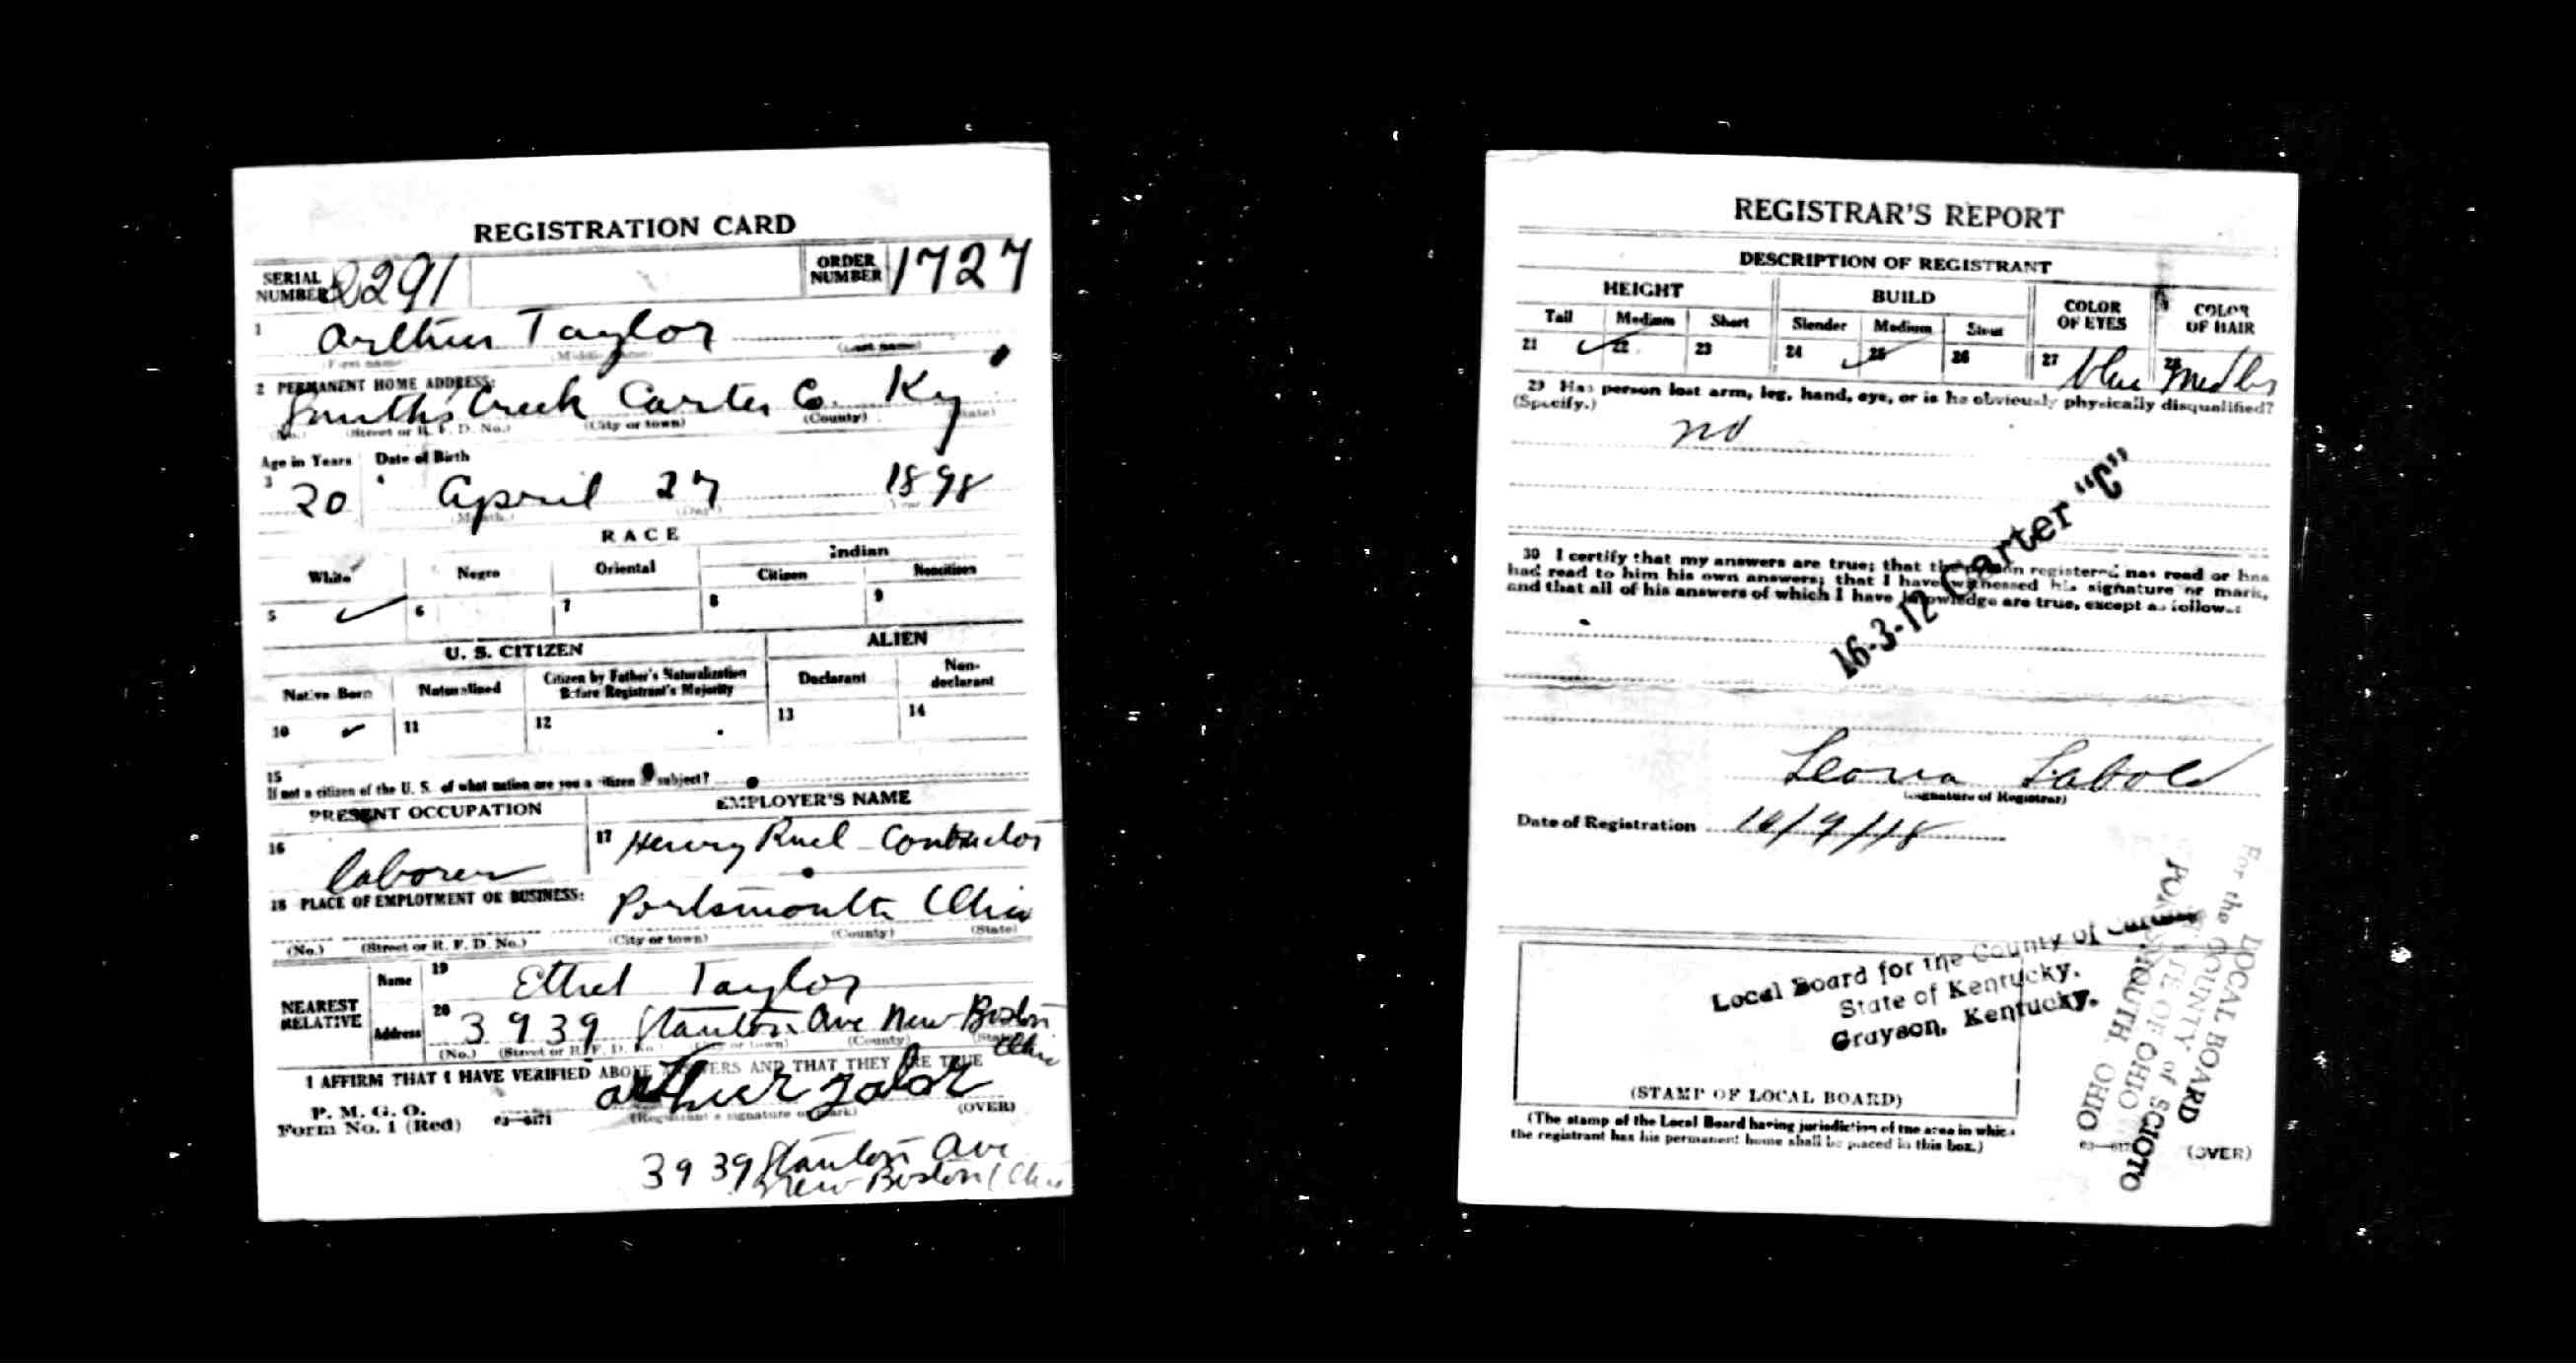 REGISTRATION CARD
SERIAL NUMBER 2291 ORDER NUMBER 1727
1 Arthur Taylor
(First name) (Middle name) (Last name)
2 PERMANENT HOME ADDRESS:
Smiths Creek Carter Co. Ky
(No.) (Street or R. F. D. No.) (City or town) (County) (State)
Age in Years Date of Birth
3 20 4 April 27 1898
(Month.) (Day) Year
RACE
White Negro Oriental Indian
Citizen Noncitizen
5 ✓ 6 7 8 9
U. S. CITIZEN ALIEN
Native Born Naturalized Citizen by Father's Naturalization Before Registrant's Majority Declarant Non-declarant
10 ✓ 11 12 13 14
15
If not a citizen of the U. S. of what nation are you a citizen subject?
PRESENT OCCUPATION EMPLOYER'S NAME
16 laborer 17 Henry Ruel - Contractor
18 PLACE OF EMPLOYMENT OR BUSINESS:
Portsmouth Ohio
(No.) (Street or R. F. D. No.) (City or town) (County) (State)
NEAREST RELATIVE Name 19 Ethel Taylor
Address 20 3939 Stanton Ave New Boston Ohio
(No.) (Street or R. F. D. No.) (City or town) (County) (State)
I AFFIRM THAT I HAVE VERIFIED ABOVE ANSWERS AND THAT THEY ARE TRUE
P. M. G. O.
Form No. 1 (Red) 03—6171 arthur
(Registrant's signature or mark) (OVER)
3939 Stanton Ave
New Boston Ohio
REGISTRAR'S REPORT
DESCRIPTION OF REGISTRANT
HEIGHT BUILD COLOR OF EYES COLOR OF HAIR
Tall Medium Short Slender Medium Stout
21 ✓ 22 23 24 ✓ 25 26 27 blue 28 med br
29 Has person lost arm, leg, hand, eye, or is he obviously physically disqualified?
(Specify.)
no
30 I certify that my answers are true; that the person registered has read or has
had read to him his own answers; that I have witnessed his signature or mark,
and that all of his answers of which I have knowledge are true, except as follows:
16-3-12 Carter "C"
Leona Labold
(Signature of Registrar)
Date of Registration
Local Board for the County of Carter
State of Kentucky.
Grayson, Kentucky.
(STAMP OF LOCAL BOARD)
(The stamp of the Local Board having jurisdiction of the area in which
the registrant has his permanent home shall be placed in this box.)
03—6171 (OVER)
LOCAL BOARD
For the COUNTY of SCIOTO
STATE OF OHIO
PORTSMOUTH, OHIO